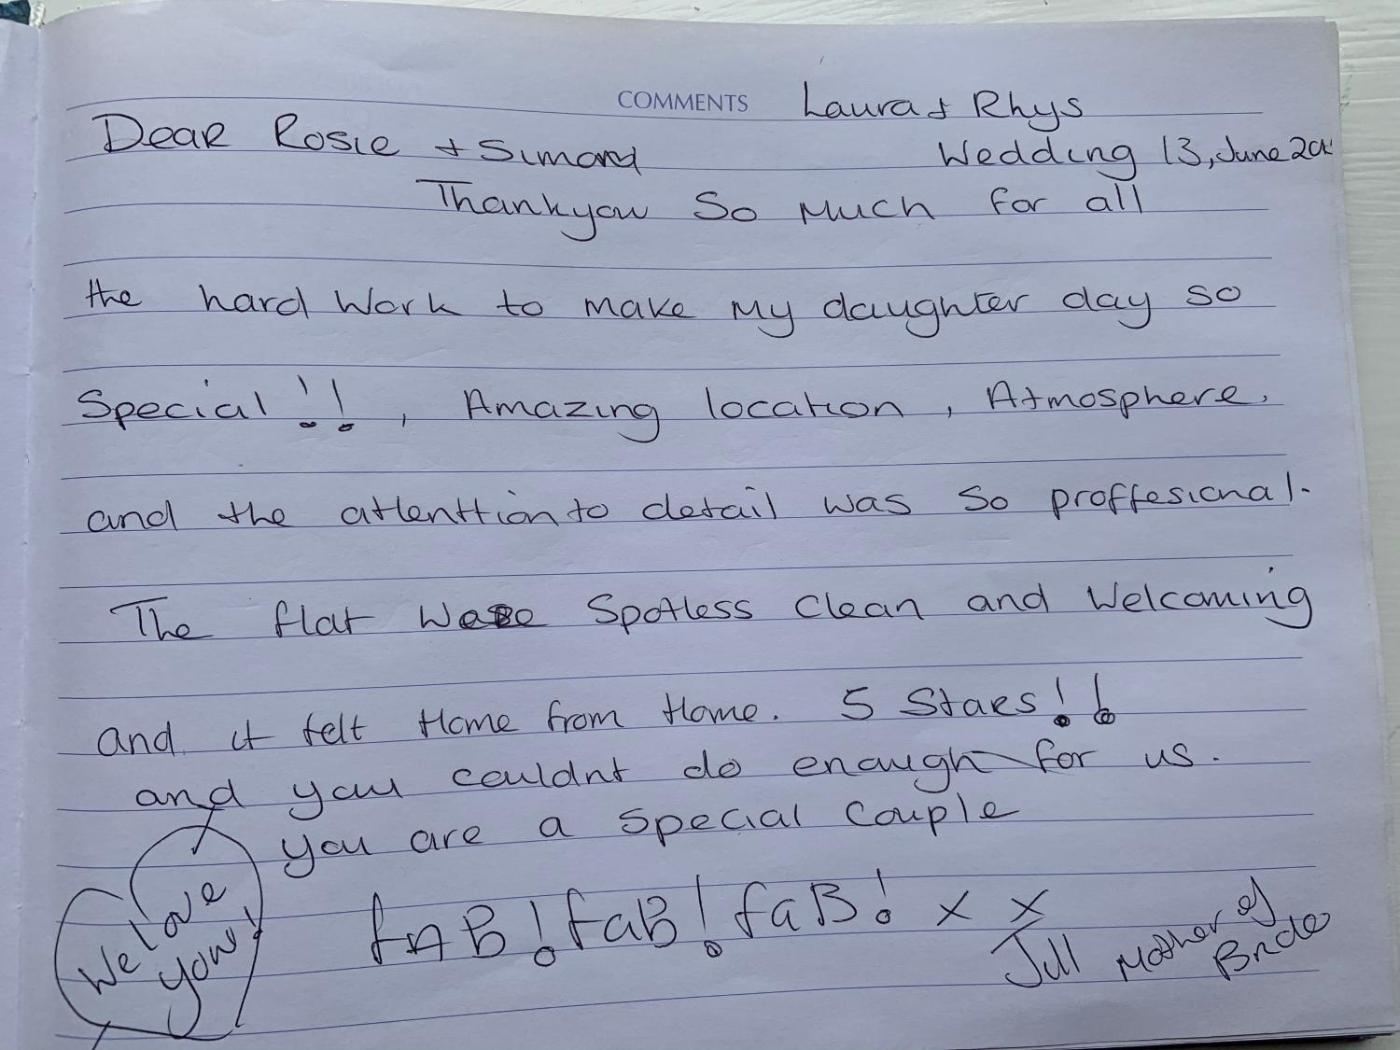 COMMENTS Laura + Rhys
Dear Rosie + Simond
Wedding 13, June
Thankyou So Much for all
the hard work to make my daughter day so
Special !! , Amazing location , Atmosphere,
and the attenttion to detail was so proffesional.
The flat were Spotless clean and Welcoming
and it felt Home from Home. 5 Stars!!
and you couldnt do enough for us.
you are a special couple
fAB! faB! faB! x x
We love you!
Jill Mother of Bride